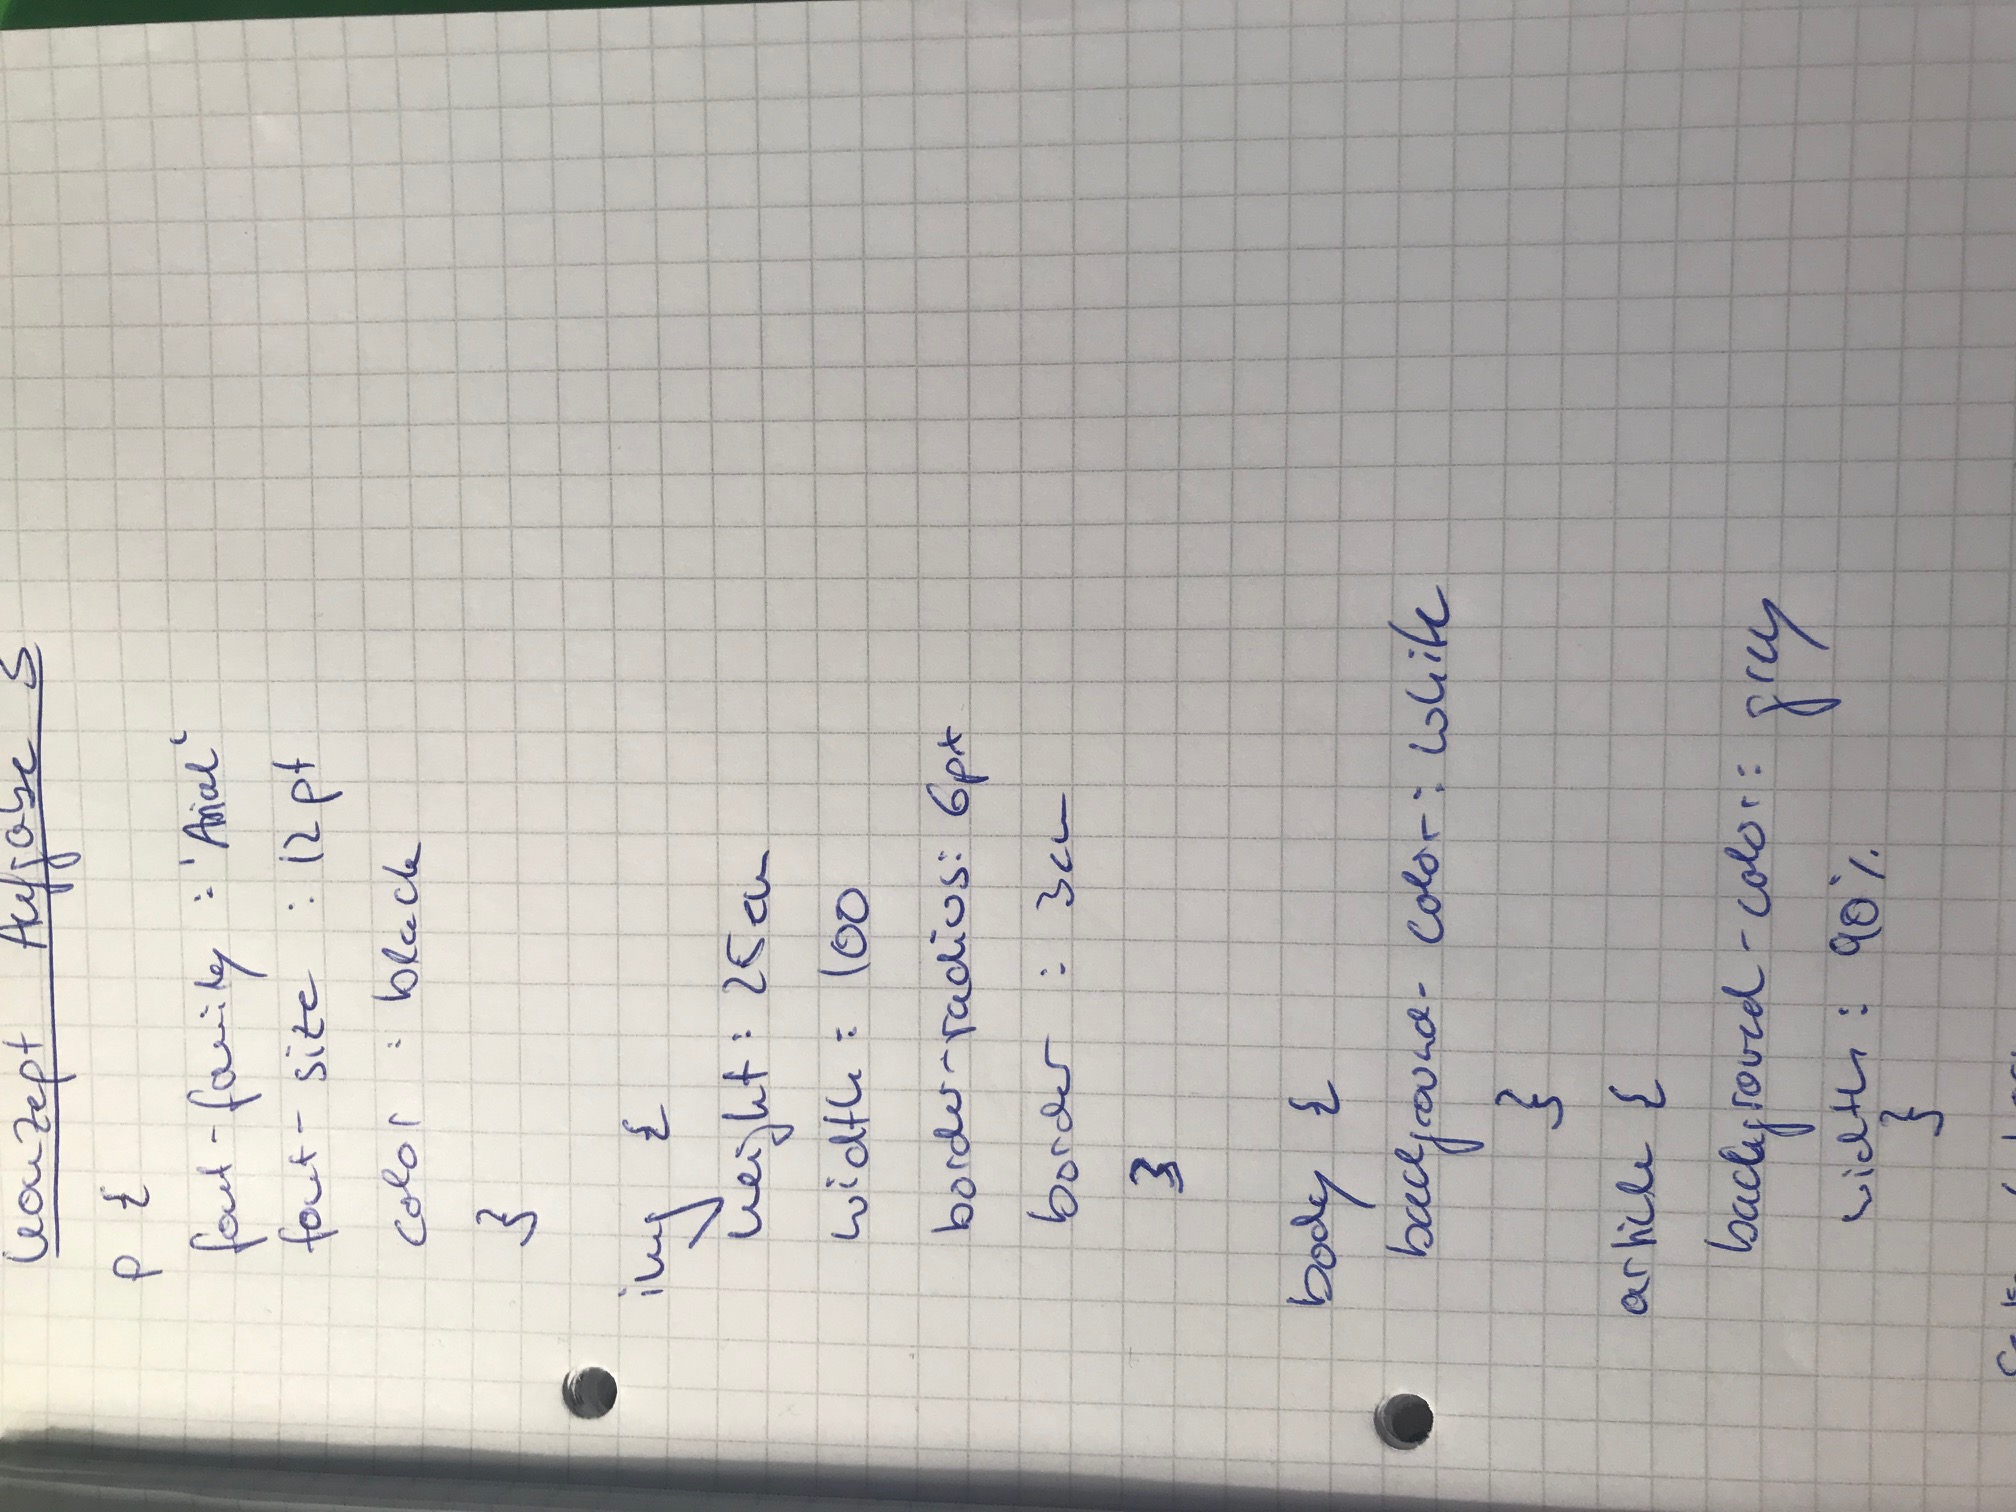 Konzept Aufgabe 5
p {
font-family : 'Arial'
font-size : 12pt
color : black
}
img {
height: 25cm
width: 100
border-radius: 6px
border : 3cm
}
body {
background-color: white
}
article {
background-color: grey
width: 90%
}